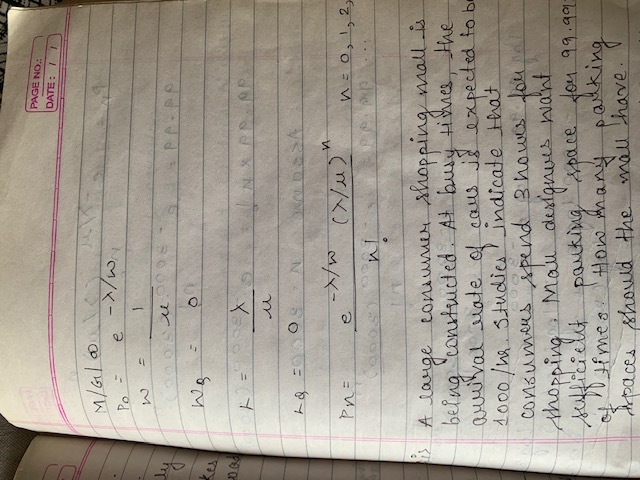 PAGE NO.:
DATE: / /
M/G/∞
P0 = e^-λ/w
w = 1/μ
WQ = 0
L = λ/μ
LQ = 0
Pn = e^-λ/w (λ/μ)^n / n! n = 0, 1, 2, ...
A large consumer shopping mall is
being constructed. At busy times, the
arrival rate of cars is expected to be
1000/hr. Studies indicate that
consumers spend 3 hours for
shopping. Mall designers want
sufficient parking space for 99.99
of times. How many parking
spaces should the mall have.